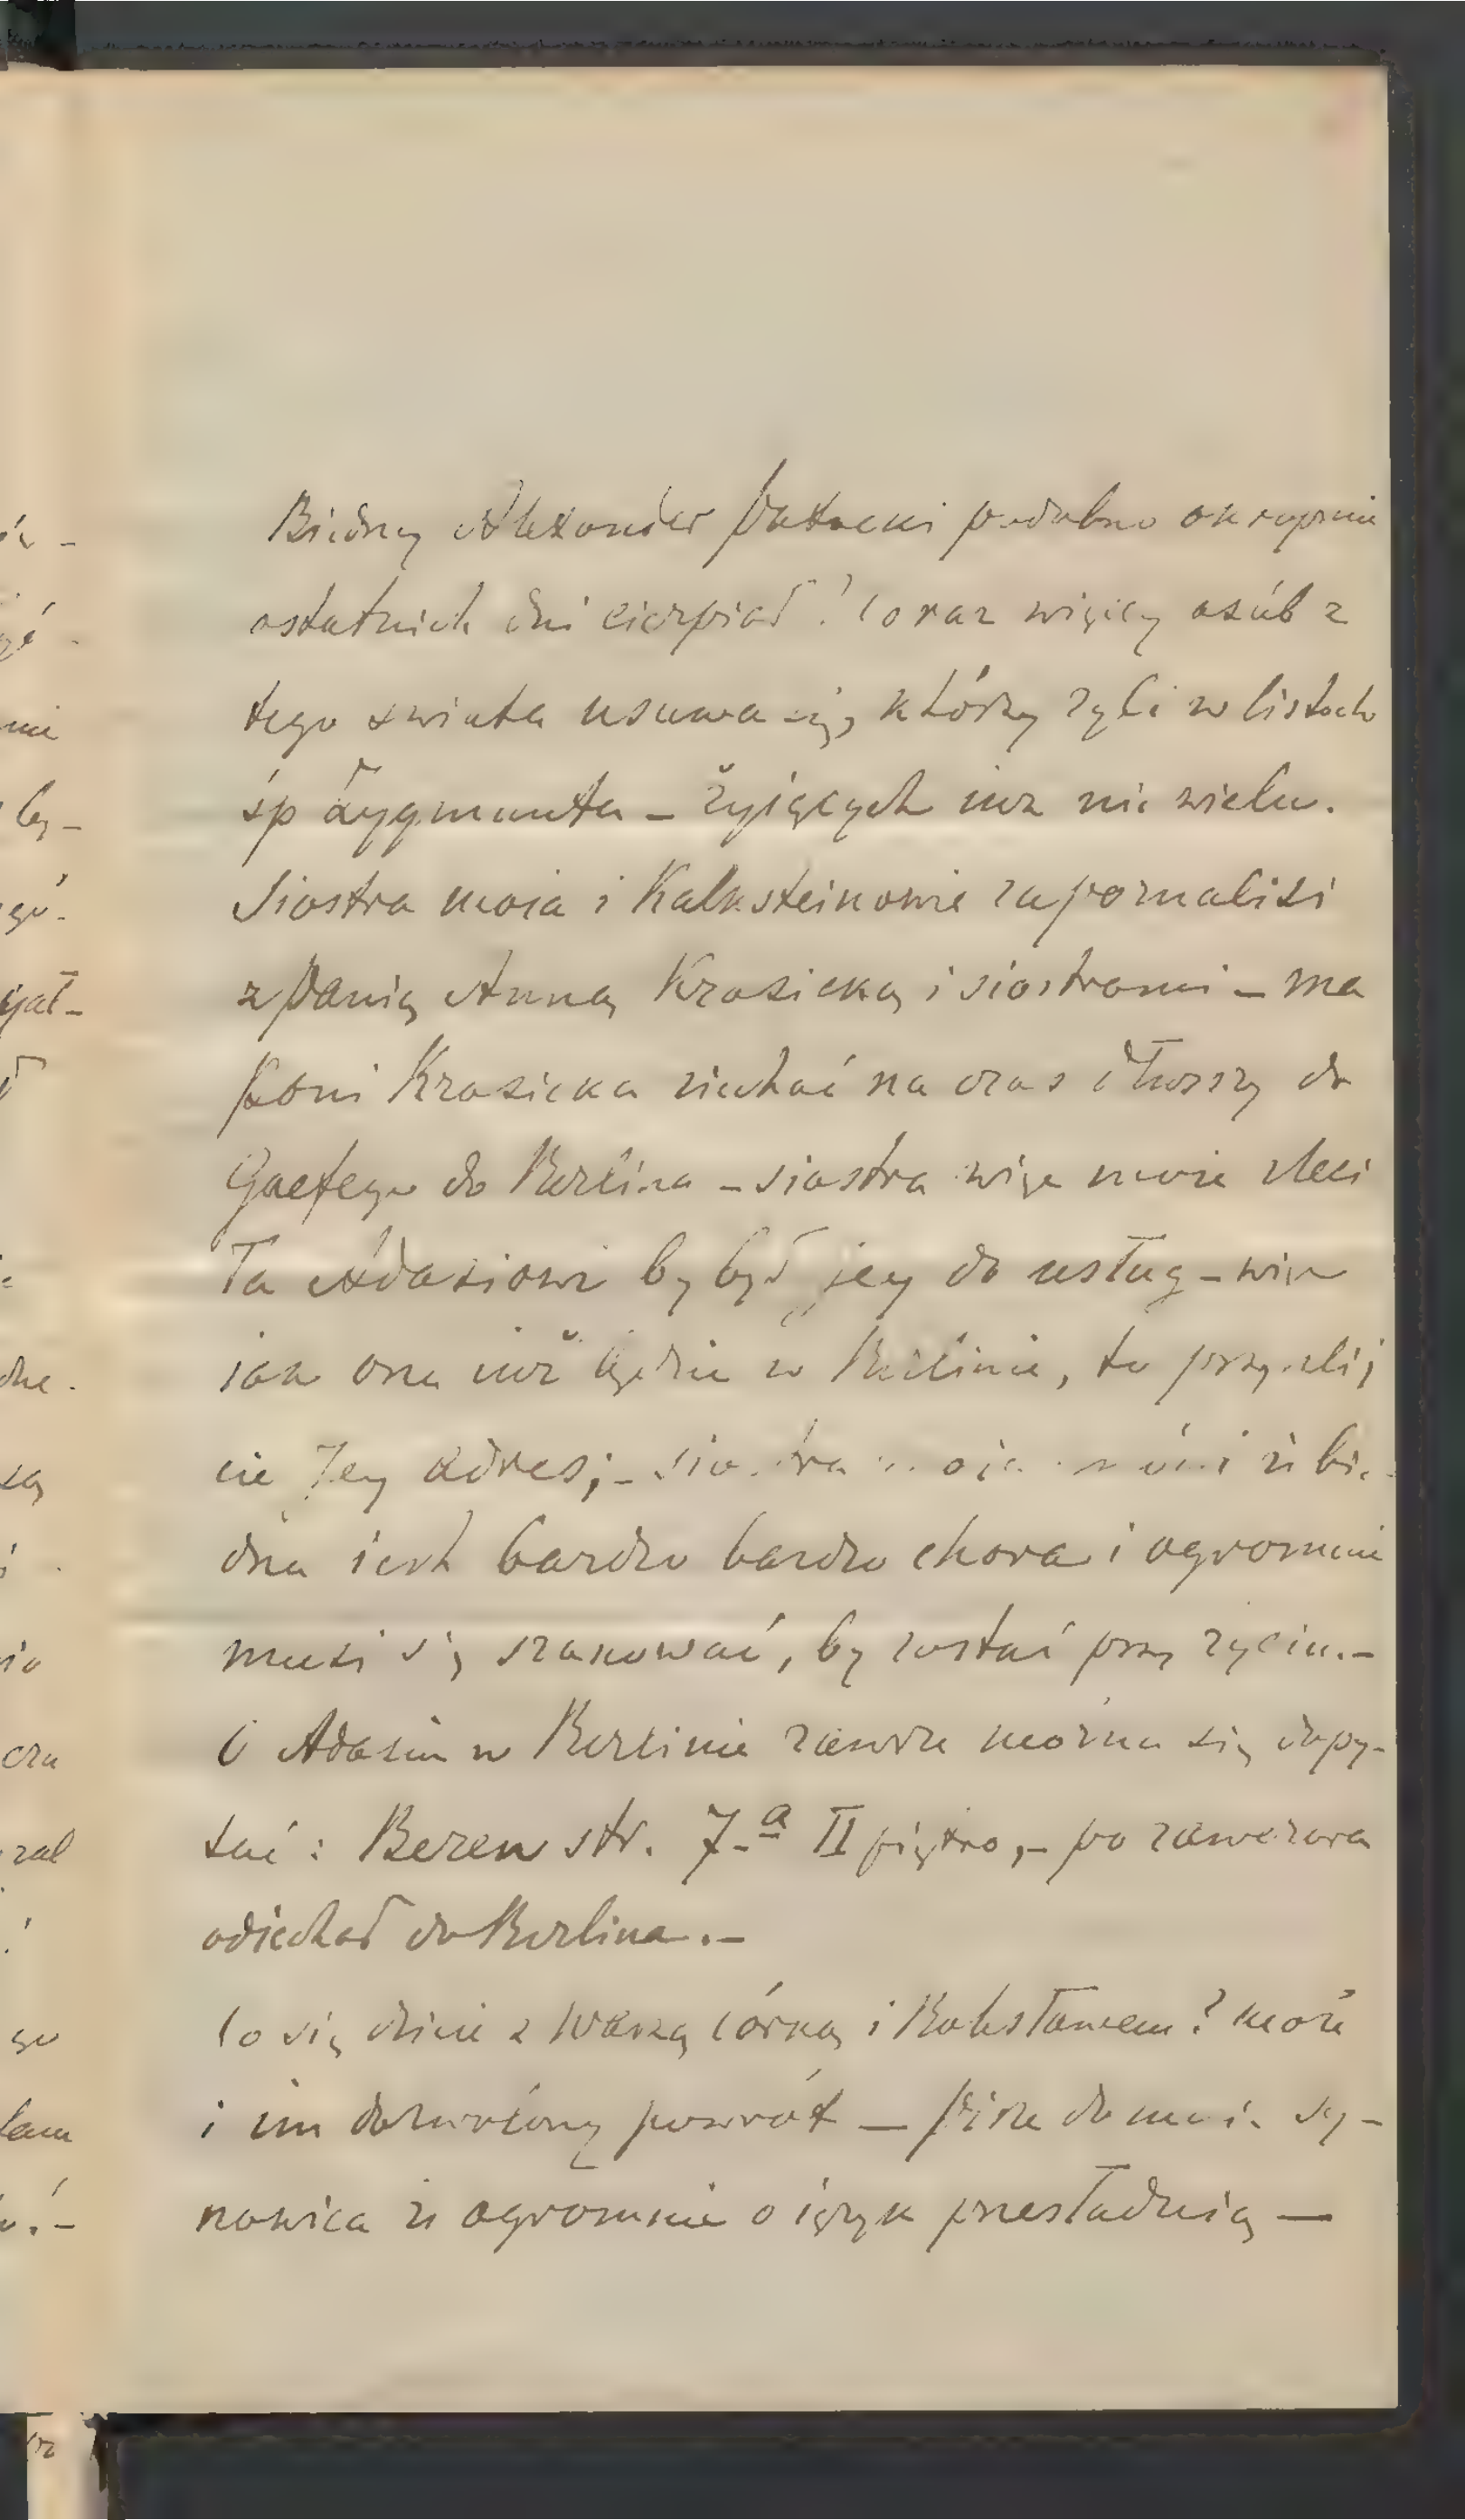 Biedny Alexander Potocki podobno okropnie
ostatnich dni cierpiał! Coraz więcey osób z
tego świata usuwa się, którzy żyli w listach
śp Zygmunta – żyjących iuż nie wielu.
Siostra moia i Kalksteinowie zapoznali si
z Panią Anną Krasicką i siostrami – ma
Pani Krasicka ziechać na czas dłuższy do
do Berlina – siostra więc moia zleci
ła Adasiowi by był jey do usług – więc
iak ona iuż będzie w Berlinie, to przyszlij
cie Jey adres; – siostra moia mówi że bie-
dna iest bardzo bardzo chora i ogromnie
musi się szanować, by zostać przy życiu. –
O Adasia w Berlinie zawsze można się dopy-
tać: Beren str. 7-a II piętro, – po zawczora
odiechał do Berlina. –
Co się dzieie z Waszą córką i może
i im dozwolony powrót – pisze do mnie sy-
nowica że ogromnie o ięzyk prześladuią –